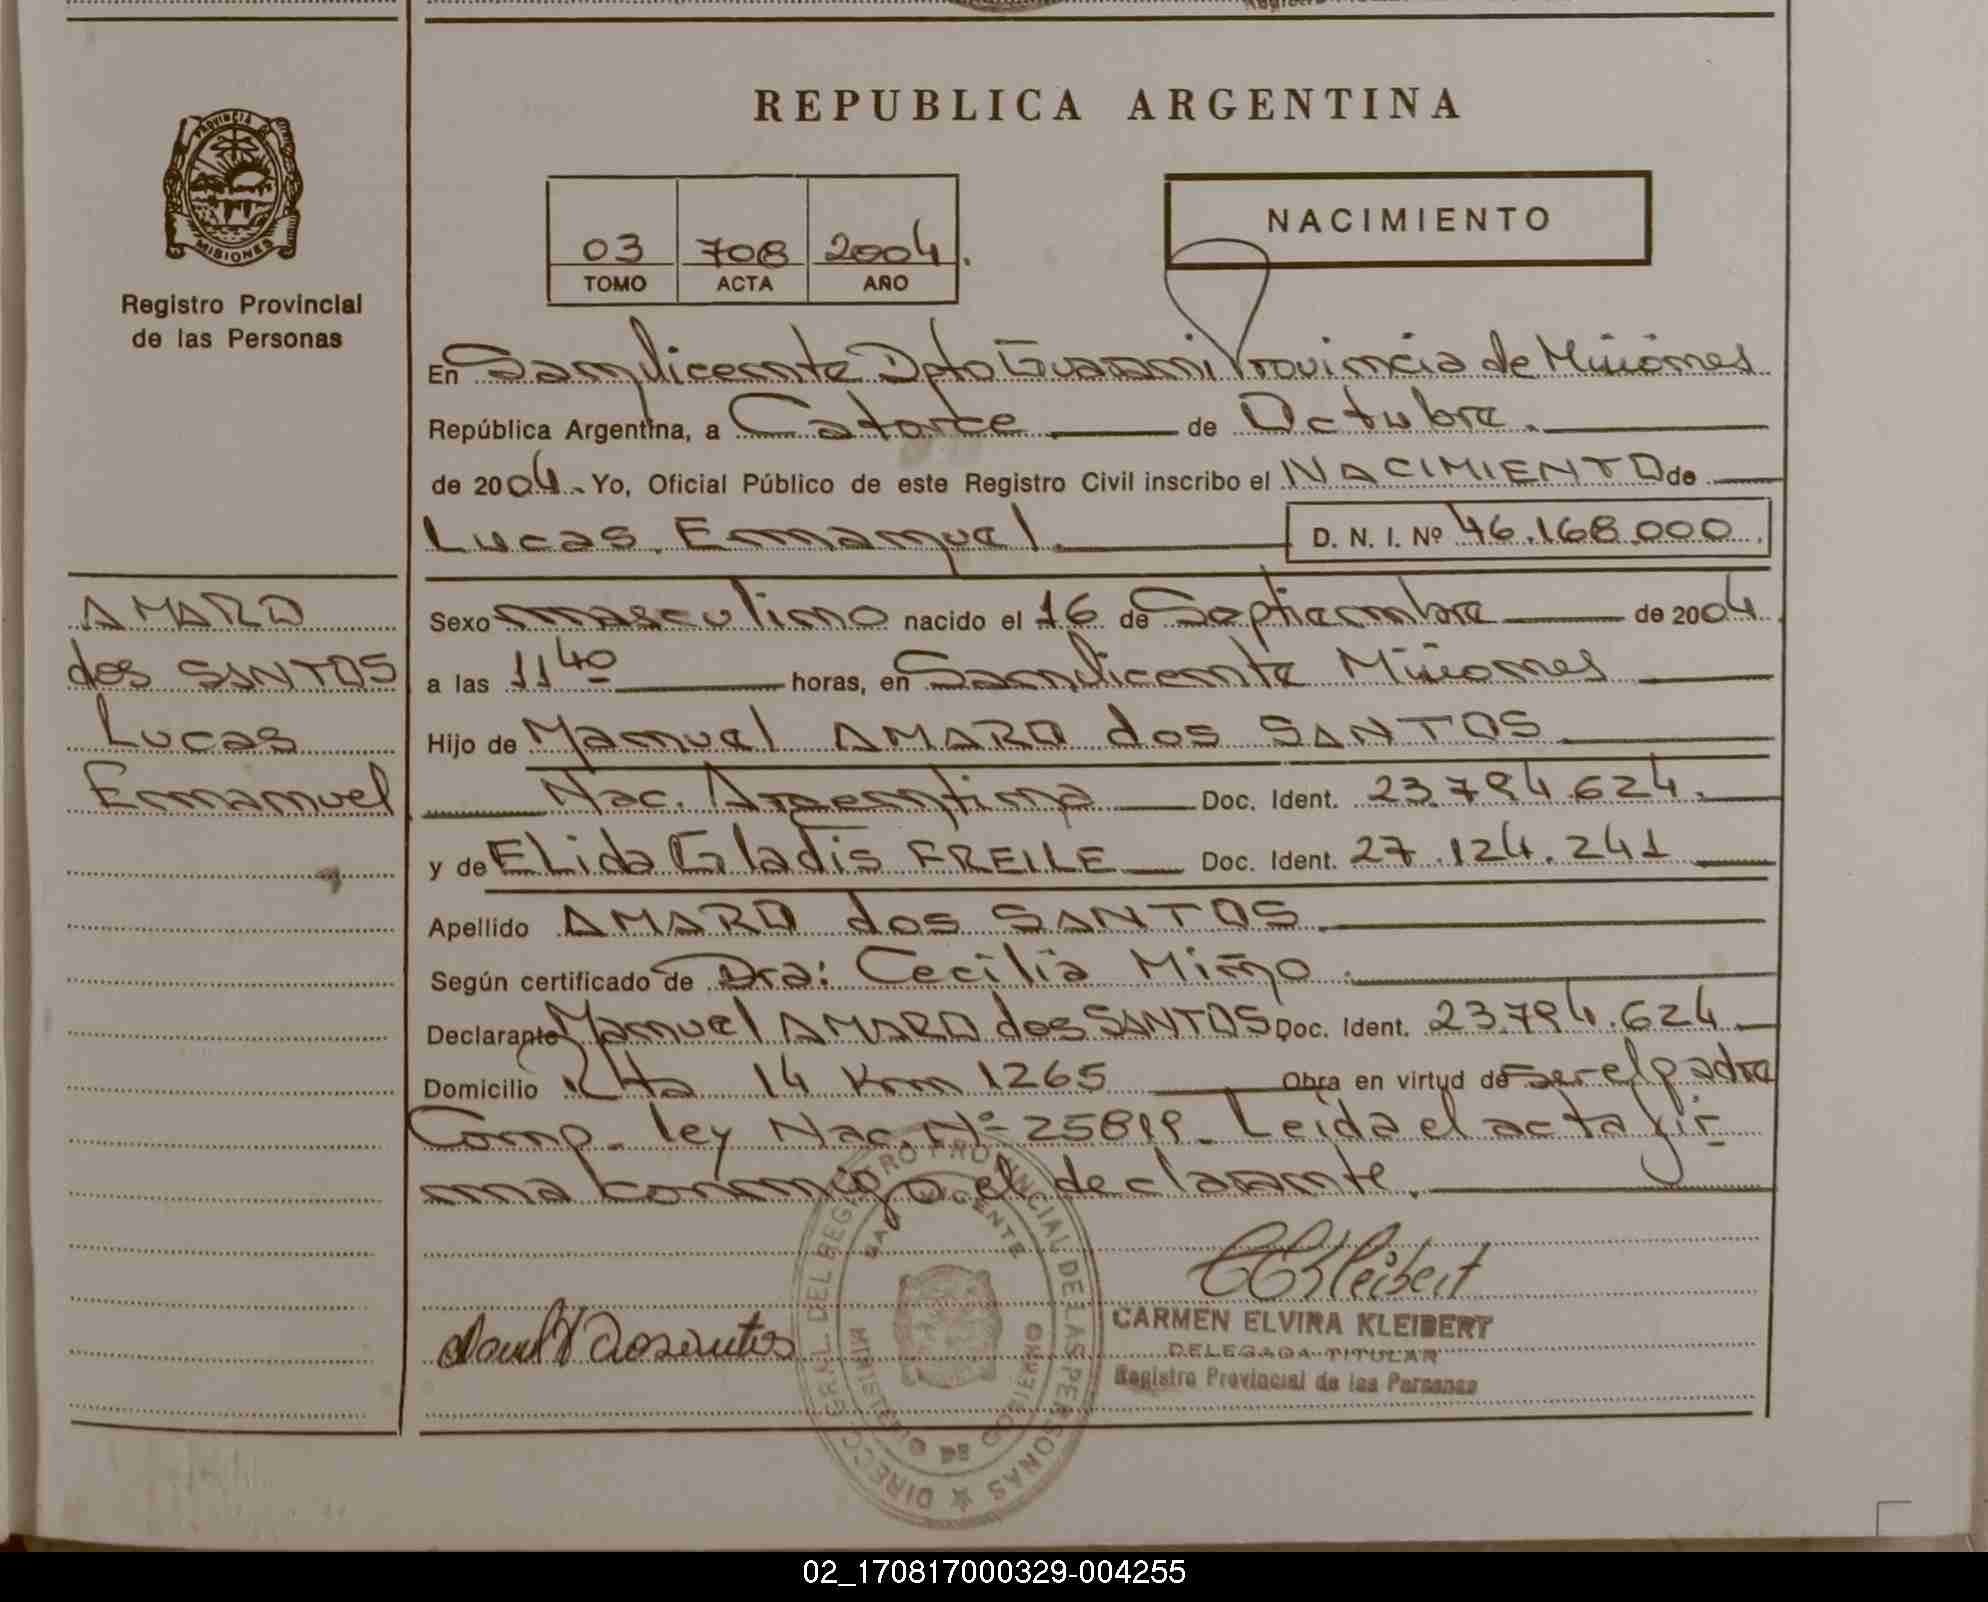 REPUBLICA ARGENTINA
PROVINCIA DE
MISIONES
Registro Provincial
de las Personas
03 708 2004.
TOMO ACTA AÑO
NACIMIENTO
En San Vicente Dpto Guarani Provincia de Misiones
República Argentina, a Catorce de Octubre.
de 2004. Yo, Oficial Público de este Registro Civil inscribo el NACIMIENTO de
Lucas Emmanuel. D. N. I. Nº 46.168.000.
AMARO
dos SANTOS
Lucas
Emmanuel
Sexo masculino nacido el 16 de Septiembre de 2004.
a las 11 40 horas, en San Vicente Misiones
Hijo de Manuel AMARO dos SANTOS
Nac. Argentina Doc. Ident. 23.794.624.
y de ELida Gladis FREILE Doc. Ident. 27.124.241
Apellido AMARO dos SANTOS
Según certificado de Dra: Cecilia Miño.
Declarante Manuel AMARO dos SANTOS Doc. Ident. 23.794.624
Domicilio Rta 14 Km 1265 Obra en virtud de ser el padre
Comp. ley Nac. Nº 25819. Leida el acta fir-
ma conmigo el declarante.
DIRECC. GRAL. DEL REGISTRO PROVINCIAL DE LAS PERSONAS
SAN VICENTE
MINISTERIO DE GOBIERNO
CEKleibert
CARMEN ELVIRA KLEIBERT
DELEGADA TITULAR
Registro Provincial de las Personas
02_170817000329-004255